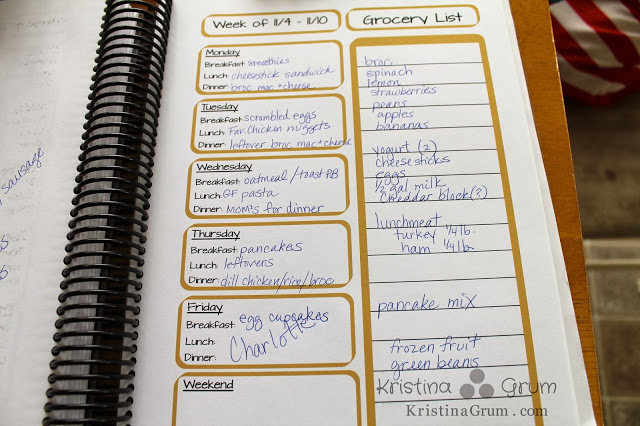 Week of 11/4 - 11/10
Monday
Breakfast: smoothies
Lunch: cheesestick sandwich
Dinner: broc mac + cheese
Tuesday
Breakfast: scrambled eggs
Lunch: Far. Chicken nuggets
Dinner: leftover broc mac + cheese
Wednesday
Breakfast: oatmeal / toast PB
Lunch: GF pasta
Dinner: Mom's for dinner
Thursday
Breakfast: pancakes
Lunch: leftovers
Dinner: dill chicken/rice/broc
Friday
Breakfast: egg cupcakes
Lunch:
Dinner: Charlotte
Weekend
Grocery List
broc
spinach
lemon
strawberries
pears
apples
bananas
yogurt (2)
cheesesticks
eggs
1/2 gal milk
cheddar block (?)
lunchmeat
turkey 1/4 lb.
ham 1/4 lb.
pancake mix
frozen fruit
green beans
sausage
Kristina Grum
KristinaGrum.com